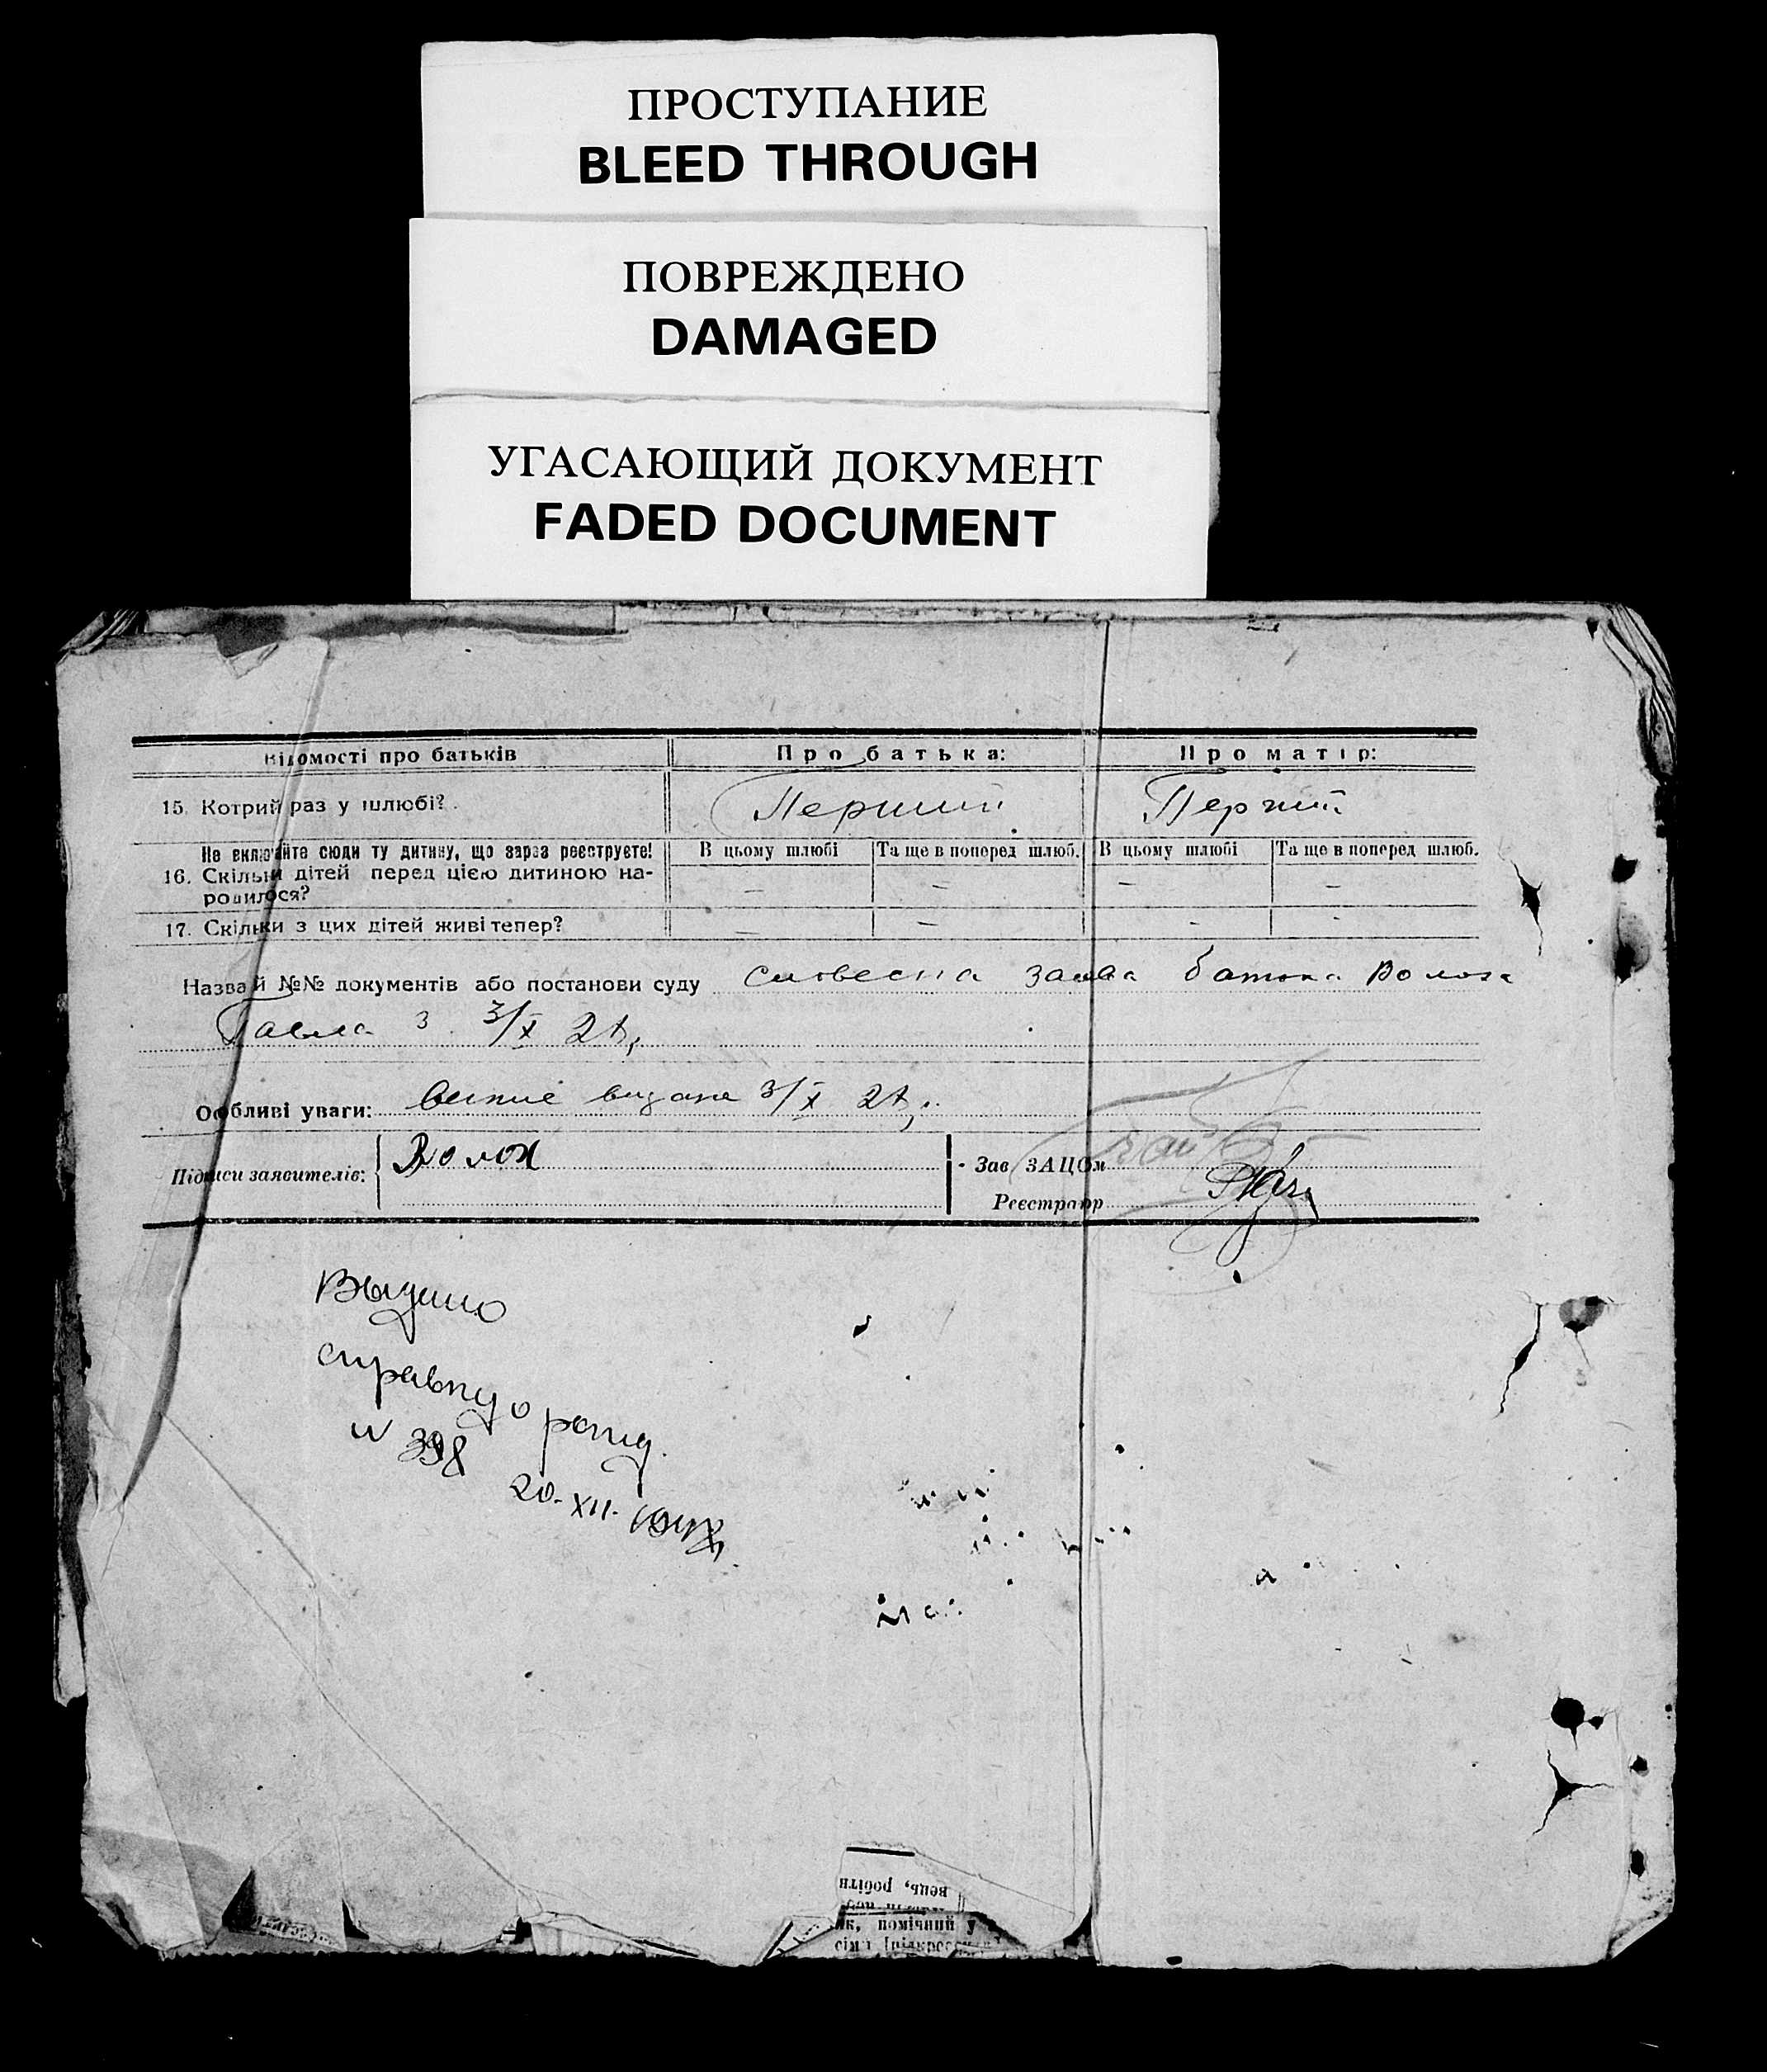 ПРОСТУПАНИЕ
BLEED THROUGH
ПОВРЕЖДЕНО
DAMAGED
УГАСАЮЩИЙ ДОКУМЕНТ
FADED DOCUMENT
Відомості про батьків Про батька: Про матір:
15. Котрий раз у шлюбі? Перший Перший
Не включайте сюди ту дитину, що зараз реєструєте! В цьому шлюбі Та ще в поперед шлюб. В цьому шлюбі Та ще в поперед шлюб.
16. Скільки дітей перед цією дитиною на- — — — —
родилося?
17. Скільки з цих дітей живі тепер? — — - -
Назва й №№ документів або постанови суду словесна заява батька Волоха
Павла з 3/X
Особливі уваги: видана 3/X
Підписи заявителів: Волох Зав ЗАЦОм
Реєстратор
Выдано
справку о рожд.
N 398
20. XII.
вець, робітн
ик, помічний у
сім'ї